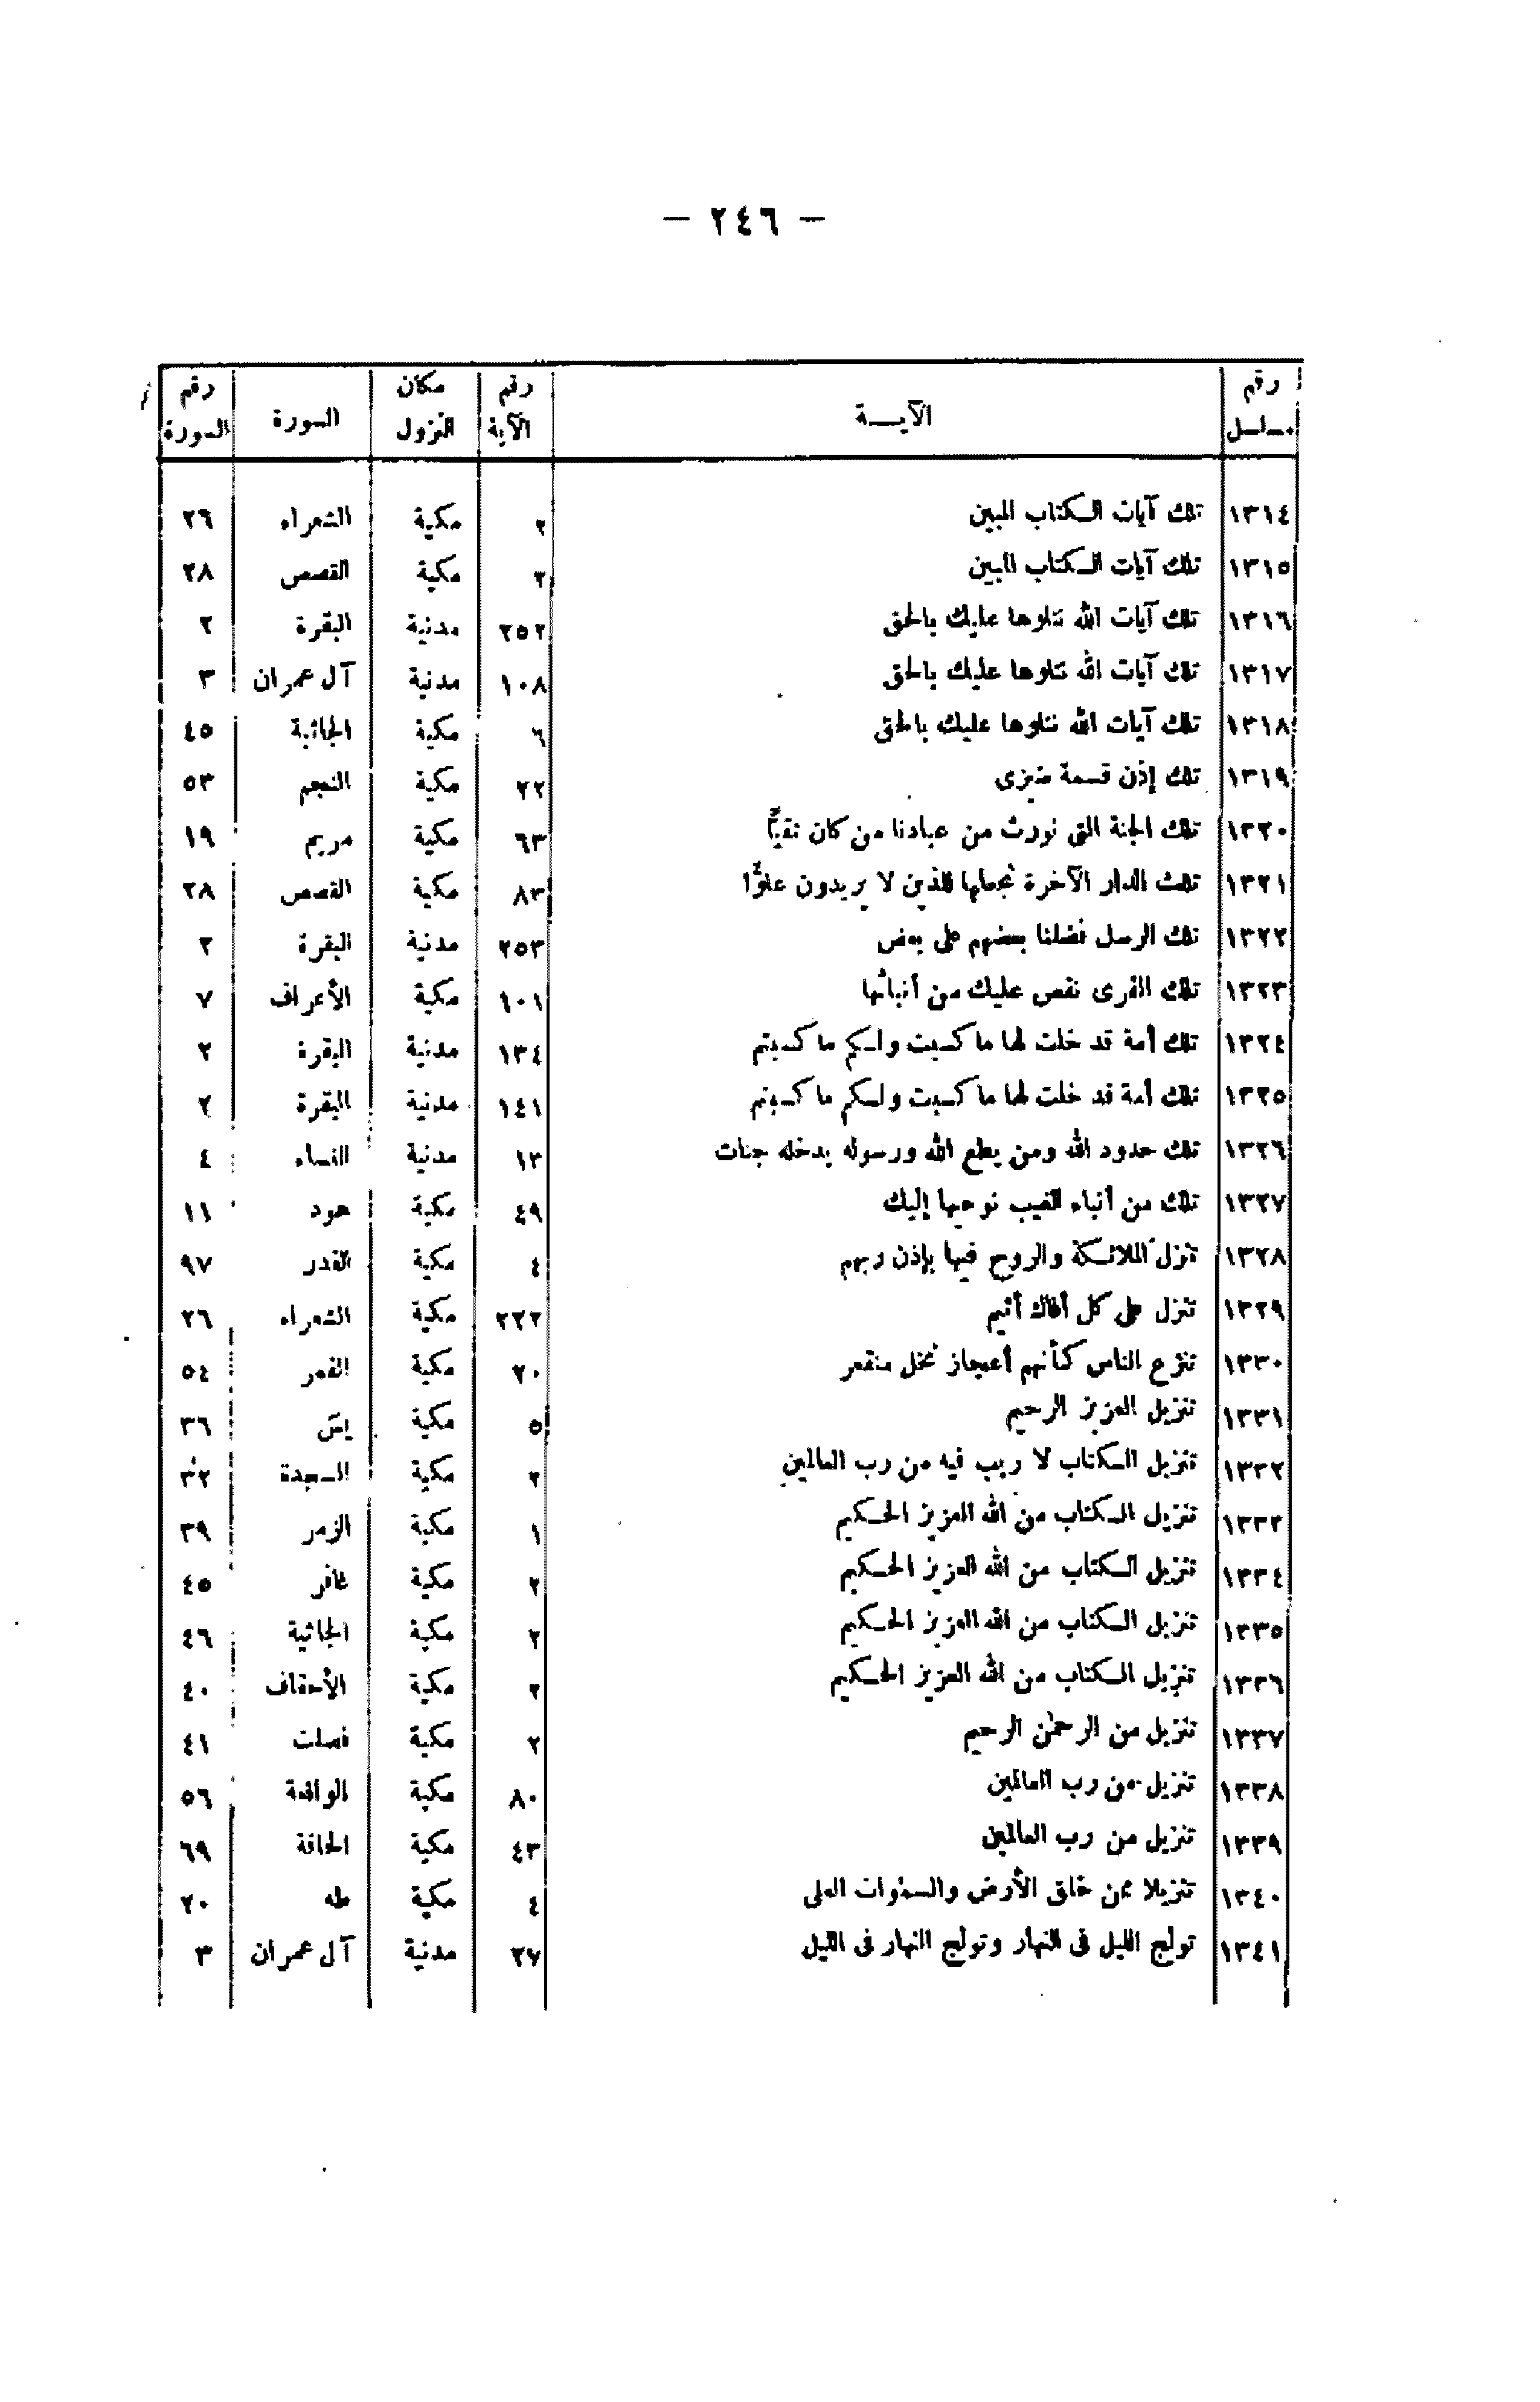 — ٢٤٦ —
رقم مسلسل | الآيــة | رقم الآية | مكان النزول | السورة | رقم السورة
١٣١٤ | تلك آيات الكتاب المبين | ٢ | مكية | الشعراء | ٢٦
١٣١٥ | تلك آيات الكتاب المبين | ٢ | مكية | القصص | ٢٨
١٣١٦ | تلك آيات الله نتلوها عليك بالحق | ٢٥٢ | مدنية | البقرة | ٢
١٣١٧ | تلك آيات الله نتلوها عليك بالحق | ١٠٨ | مدنية | آل عمران | ٣
١٣١٨ | تلك آيات الله نتلوها عليك بالحق | ٦ | مكية | الجاثية | ٤٥
١٣١٩ | تلك إذن قسمة ضيزى | ٢٢ | مكية | النجم | ٥٣
١٣٢٠ | تلك الجنة التى نورث من عبادنا من كان تقيًّا | ٦٣ | مكية | مريم | ١٩
١٣٢١ | تلك الدار الآخرة نجعلها للذين لا يريدون علوًّا | ٨٣ | مكية | القصص | ٢٨
١٣٢٢ | تلك الرسل فضلنا بعضهم على بعض | ٢٥٣ | مدنية | البقرة | ٢
١٣٢٣ | تلك القرى نقص عليك من أنبائها | ١٠١ | مكية | الأعراف | ٧
١٣٢٤ | تلك أمة قد خلت لها ما كسبت ولكم ما كسبتم | ١٣٤ | مدنية | البقرة | ٢
١٣٢٥ | تلك أمة قد خلت لها ما كسبت ولكم ما كسبتم | ١٤١ | مدنية | البقرة | ٢
١٣٢٦ | تلك حدود الله ومن يطع الله ورسوله يدخله جنات | ١٣ | مدنية | النساء | ٤
١٣٢٧ | تلك من أنباء الغيب نوحيها إليك | ٤٩ | مكية | هود | ١١
١٣٢٨ | تنزل الملائكة والروح فيها بإذن ربهم | ٤ | مكية | القدر | ٩٧
١٣٢٩ | تنزل على كل أفاك أثيم | ٢٢٢ | مكية | الشعراء | ٢٦
١٣٣٠ | تنزع الناس كأنهم أعجاز نخل منقعر | ٢٠ | مكية | القمر | ٥٤
١٣٣١ | تنزيل العزيز الرحيم | ٥ | مكية | يس | ٣٦
١٣٣٢ | تنزيل الكتاب لا ريب فيه من رب العالمين | ٢ | مكية | السجدة | ٣٢
١٣٣٣ | تنزيل الكتاب من الله العزيز الحكيم | ١ | مكية | الزمر | ٣٩
١٣٣٤ | تنزيل الكتاب من الله العزيز الحكيم | ٢ | مكية | غافر | ٤٥
١٣٣٥ | تنزيل الكتاب من الله العزيز الحكيم | ٢ | مكية | الجاثية | ٤٦
١٣٣٦ | تنزيل الكتاب من الله العزيز الحكيم | ٢ | مكية | الأحقاف | ٤٠
١٣٣٧ | تنزيل من الرحمٰن الرحيم | ٢ | مكية | فصلت | ٤١
١٣٣٨ | تنزيل من رب العالمين | ٨٠ | مكية | الواقعة | ٥٦
١٣٣٩ | تنزيل من رب العالمين | ٤٣ | مكية | الحاقة | ٦٩
١٣٤٠ | تنزيلا ممن خلق الأرض والسمٰوات العلى | ٤ | مكية | طه | ٢٠
١٣٤١ | تولج الليل فى النهار وتولج النهار فى الليل | ٢٧ | مدنية | آل عمران | ٣